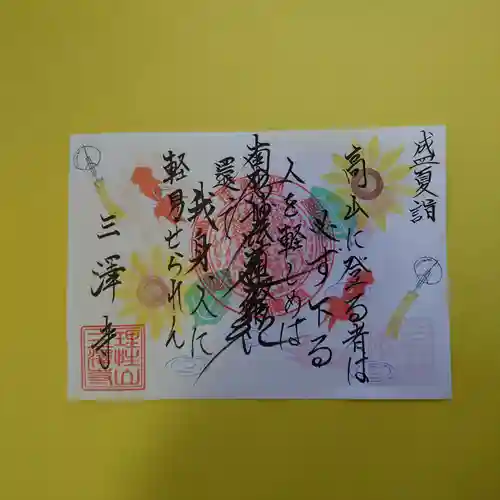 盛夏詣
高山に登る者は
必ず下る
人を軽しめは
南無妙法蓮華経
還て
我身人に
軽易せられん
三澤寺
理性山
三澤寺